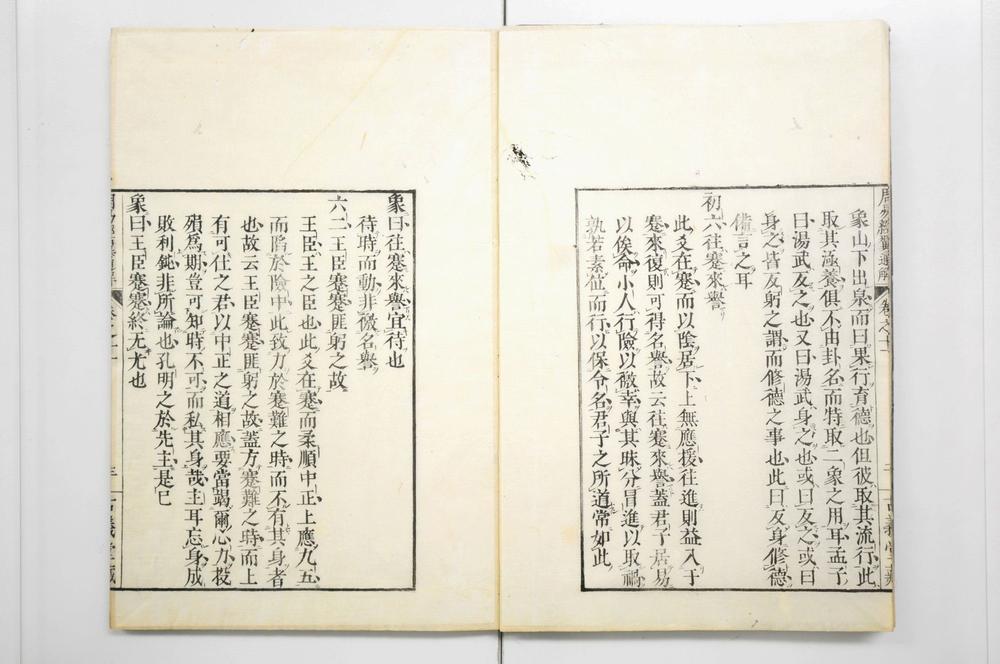 象山下出泉而曰果行育德也但彼取其流行此
取其涵養俱不由卦名而特取二象之用耳孟子
曰湯武反之也又曰湯武身之也或曰反之或曰
身之皆反躬之謂而修德之事也此曰反身修德
備言之耳
初六往蹇來譽
此爻在蹇而以陰居下上無應援往進則益入于
蹇來復則可得名譽故云往蹇來譽蓋君子居易
以俟命小人行險以徼幸與其昧分冒進以取禍
孰若素位而行以保令名君子之所道常如此
周易經翼通解 卷之十二 古義堂藏
象曰往蹇來譽宜待也
待時而動非徼名譽
六二王臣蹇蹇匪躬之故
王臣王之臣也此爻在蹇而柔順中正上應九五
而陷於險中此致力於蹇難之時而不有其身者
也故云王臣蹇蹇匪躬之故蓋方蹇難之時而上
有可仕之君以中正之道相應要當竭爾心力投
殞爲期豈可知時不可而私其身哉主耳忘身成
敗利鈍非所論也孔明之於先主是已
象曰王臣蹇蹇終无尤也